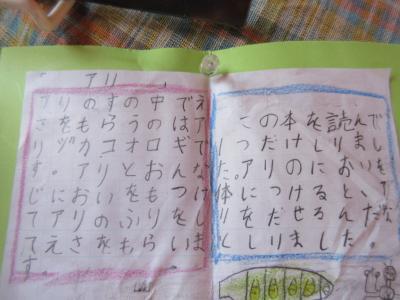 「アリ」
アリのすの中でえ
さをもらうのはア
リヅカコオロギで
す。アリとおんな
じにおいをもつけ
てアリのふりをし
てえさをもらいま
す。
この本を読んで
1つだけしりまし
た。アリのにおいを
体につけると、
りをだせるんだな
としりました。